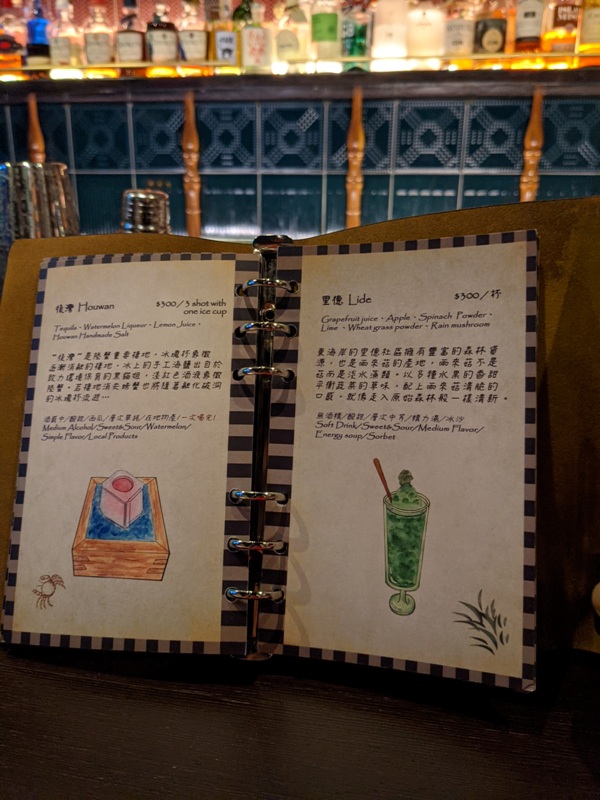 後灣 Houwan
$300/3 shot with
one ice cup
Tequila、Watermelon Liqueur、Lemon Juice、
Houwan Handmade Salt
"後灣"是陸蟹重要棲地，冰磚形象徵
逐漸消融的棲地，冰上的手工海鹽出自於
致力環境保育的黑貓姐，淺紅色酒液象徵
陸蟹，在棲地消失螃蟹也將隨著融化破洞
的冰磚外流逝…
酒藏中/酸甜/西瓜/層次單純/在地物產/一次喝完!
Medium Alcohol/Sweet&Sour/Watermelon/
Simple Flavor/Local Products
里德 Lide
$300/杯
Grapefruit juice、Apple、Spinach Powder、
Lime、Wheat grass powder、Rain mushroom
東海岸的里德社區擁有豐富的森林資
源，也是雨來菇的產地，雨來菇不是
菇而是淡水藻類，以多種水果的香甜
平衡蔬菜的草味，配上雨來菇清脆的
口感，就像走入原始森林般一樣清新。
無酒精/酸甜/層次中等/精力湯/冰沙
Soft Drink/Sweet&Sour/Medium Flavor/
Energy soup/Sorbet